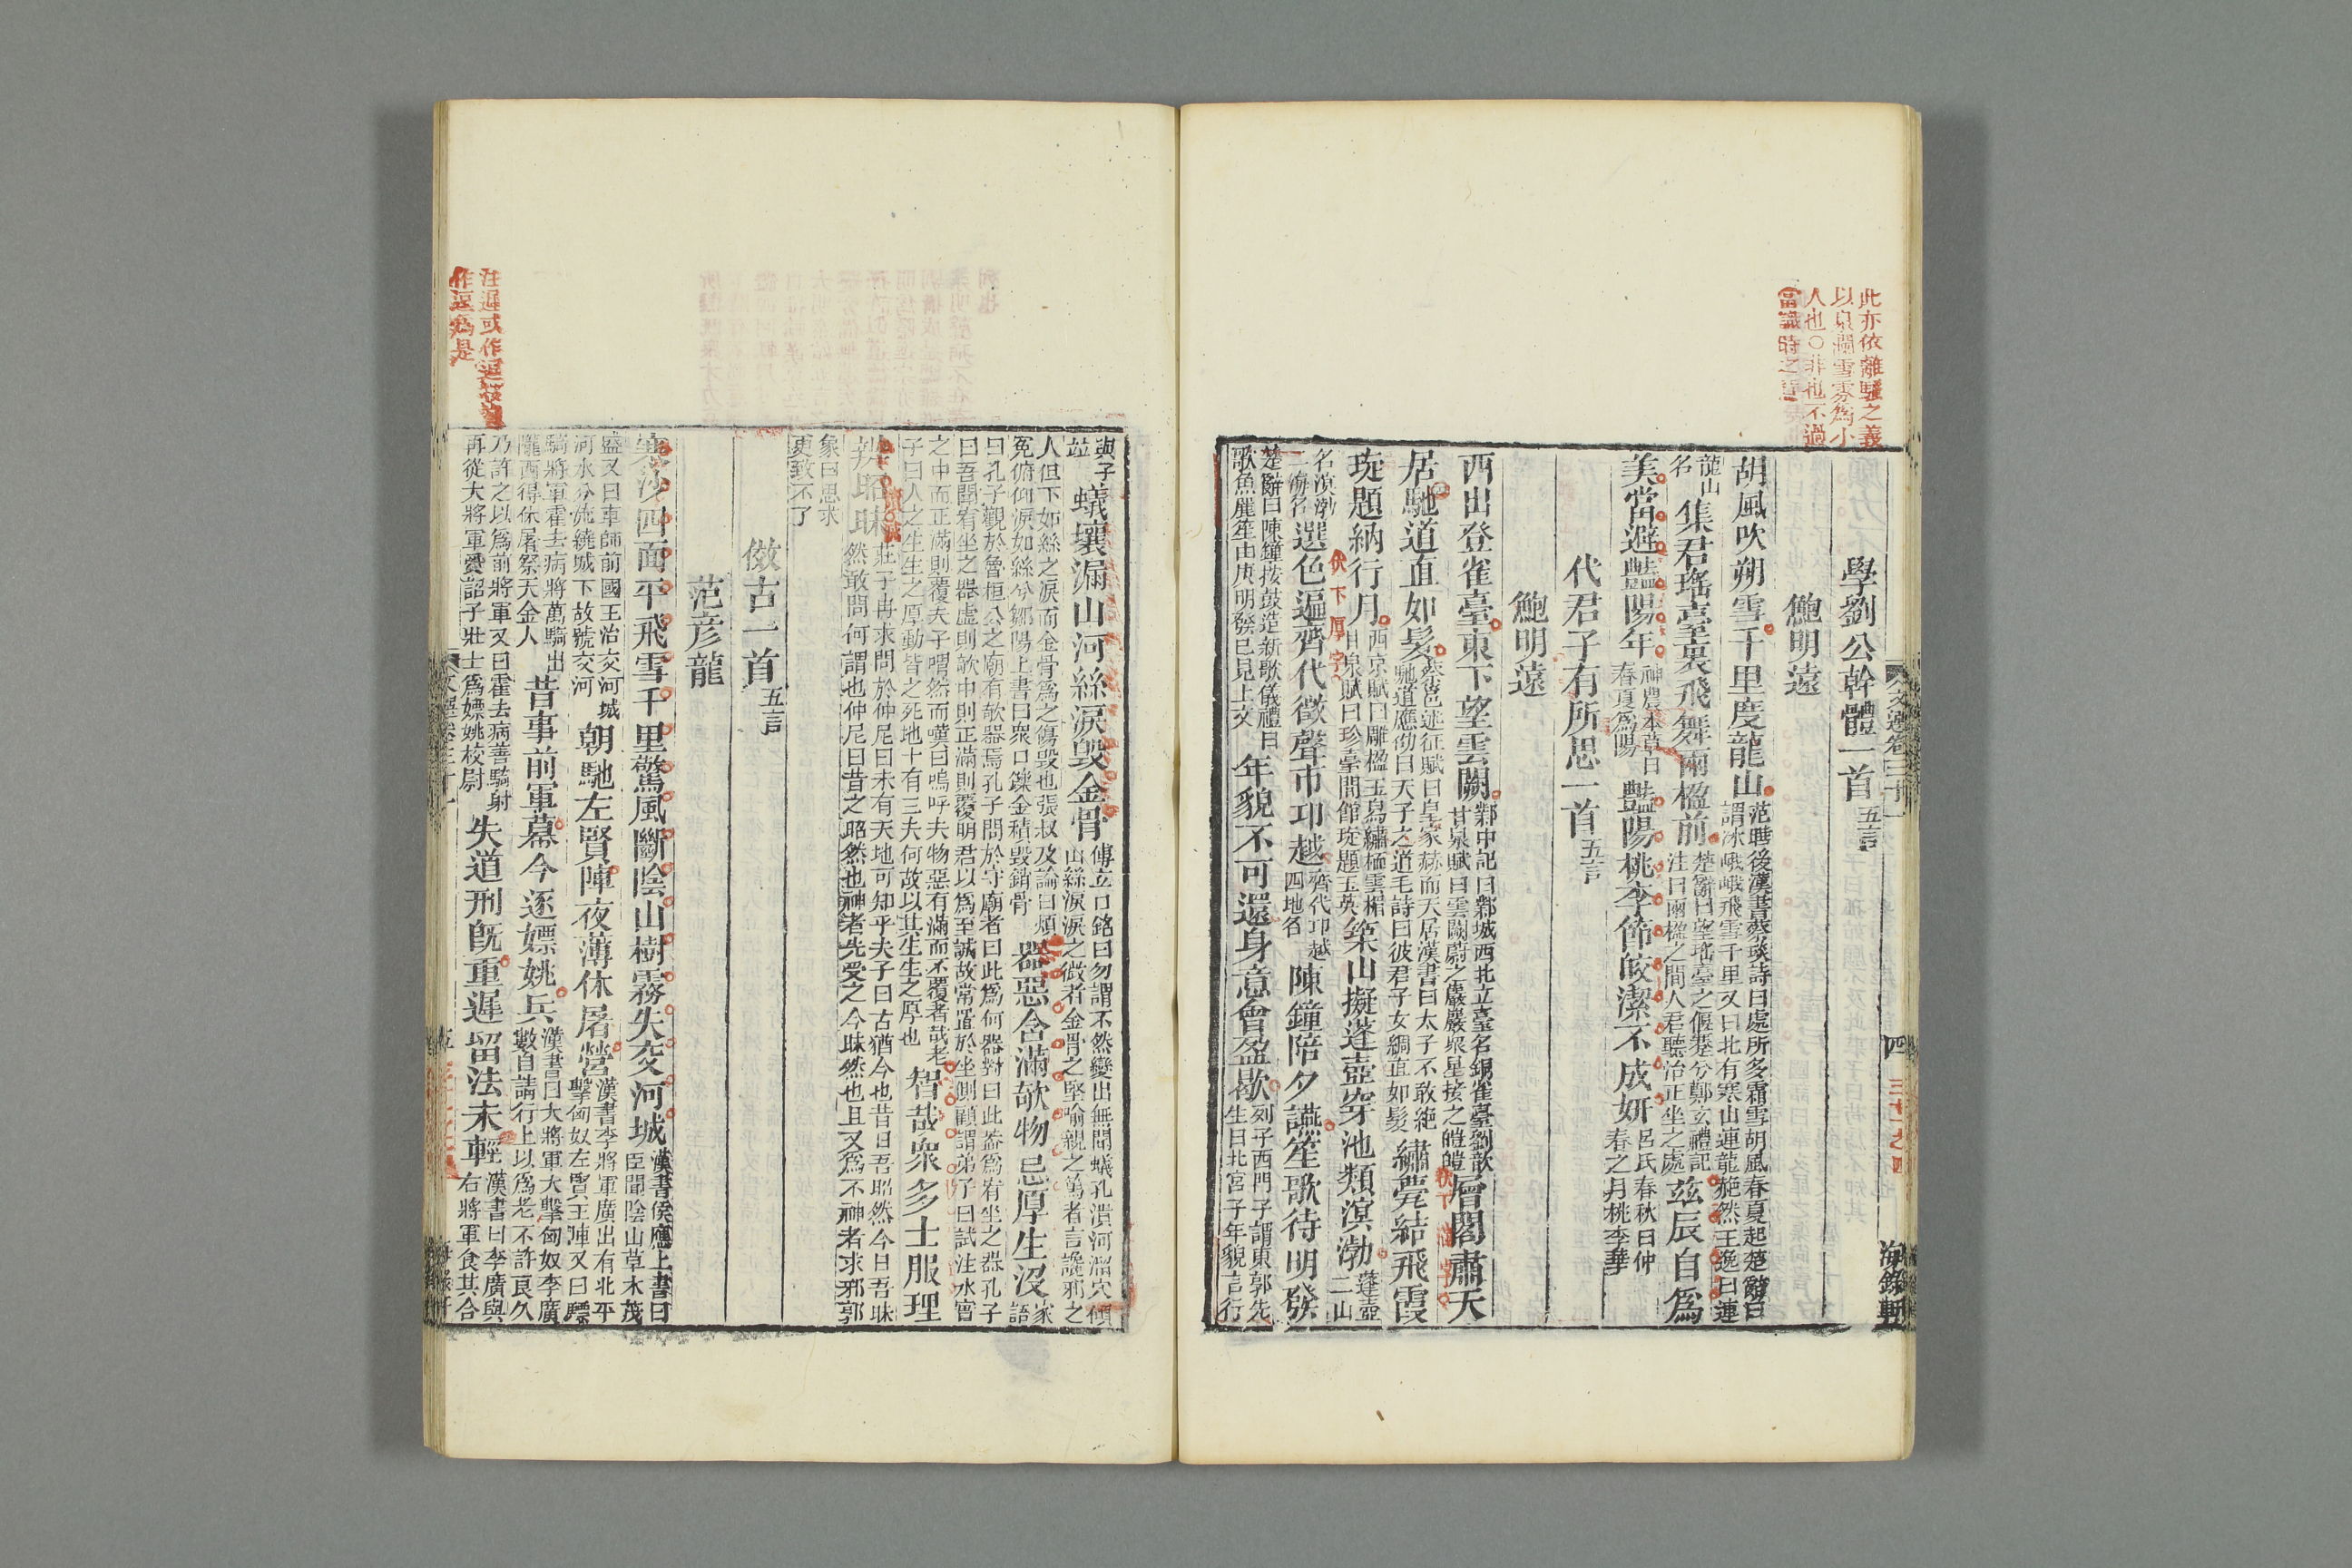 此亦依離騷之義
人也○非也不過
學劉公幹體一首五言
鮑明遠
胡風吹朔雪千里度龍山范曄後漢書蔡琰詩曰處所多霜雪胡風春夏起楚辭曰
謂冰峨峨飛雪千里又曰北有寒山逴龍赩然王逸曰逴
龍山
名
集君瑤臺裏飛舞兩楹前楚辭曰望瑤臺之偃蹇兮鄭玄禮記
注曰兩楹之間人君聽治正坐之處
玆辰自爲
美當避豔陽年神農本草曰
春夏爲陽
豔陽桃李節皎潔不成妍呂氏春秋曰仲
春之月桃李華
代君子有所思一首五言
鮑明遠
西出登雀臺東下望雲闕鄴中記曰鄴城西北立臺名銅雀臺劉歆
甘泉賦曰雲闕蔚之巖巖衆星接之皚皚
層閣肅天
居馳道直如髮蔡邕述征賦曰皇家赫而天居漢書曰太子不敢絕
馳道應劭曰天子之道毛詩曰彼君子女綢直如髮
繡甍結飛霞
琁題納行月西京賦曰雕楹玉舄繡栭雲楣
甘泉賦曰珍臺閒館琁題玉英
築山擬蓬壺穿池類溟渤蓬壺
二山
名溟渤
二海名
選色遍齊代徵聲帀邛越齊代邛越
四地名
陳鐘陪夕讌笙歌待明發
楚辭曰陳鐘按鼓造新歌儀禮曰
歌魚麗笙由庚明發已見上文
年貌不可還身意會盈歇列子西門子謂東郭先
生曰北宮子年貌言行
文選卷三十一
四
海錄軒
與子
竝
蟻壤漏山河絲淚毀金骨傅立口銘曰勿謂不然變出無間蟻孔潰河溜穴傾
山絲淚淚之微者金骨之堅喻親之篤者言讒邪之
人但下如絲之淚而金骨爲之傷毀也張叔及論曰煩
冤俯仰淚如絲兮鄒陽上書曰衆口鑠金積毀銷骨
器惡含滿欹物忌厚生沒家
語
曰孔子觀於魯桓公之廟有欹器焉孔子問於守廟者曰此爲何器對曰此蓋爲宥坐之器孔子
曰吾聞宥坐之器虛則欹中則正滿則覆明君以爲至誠故常置於坐側顧謂弟子曰試注水實
之中而正滿則覆夫子喟然而嘆曰嗚呼夫物惡有滿而不覆者哉老
子曰人之生生之厚動皆之死地十有三夫何故以其生生之厚也
智哉衆多士服理
辨昭昧莊子冉求問於仲尼曰未有天地可知乎夫子曰古猶今也昔日吾昭然今日吾昧
然敢問何謂也仲尼曰昔之昭然也神者先受之今昧然也且又爲不神者求邪郭
象曰思求
更致不了
傚古一首五言
范彥龍
寒沙四面平飛雪千里驚風斷陰山樹霧失交河城漢書侯應上書曰
臣聞陰山草木茂
盛又曰車師前國王治交河城
河水分流繞城下故號交河
朝馳左賢陣夜薄休屠營漢書李將軍廣出右北平
擊匈奴左賢王陣又曰驃
騎將軍霍去病將萬騎出
隴西得休屠祭天金人
昔事前軍幕今逐嫖姚兵漢書曰大將軍大擊匈奴李廣
數自請行上以爲老不許良久
乃許之以爲前將軍又曰霍去病善騎射
再從大將軍受詔予壯士爲嫖姚校尉
失道刑既重遲留法未輕漢書曰李廣與
右將軍食其合
注遲或作逗
作逗爲是
五